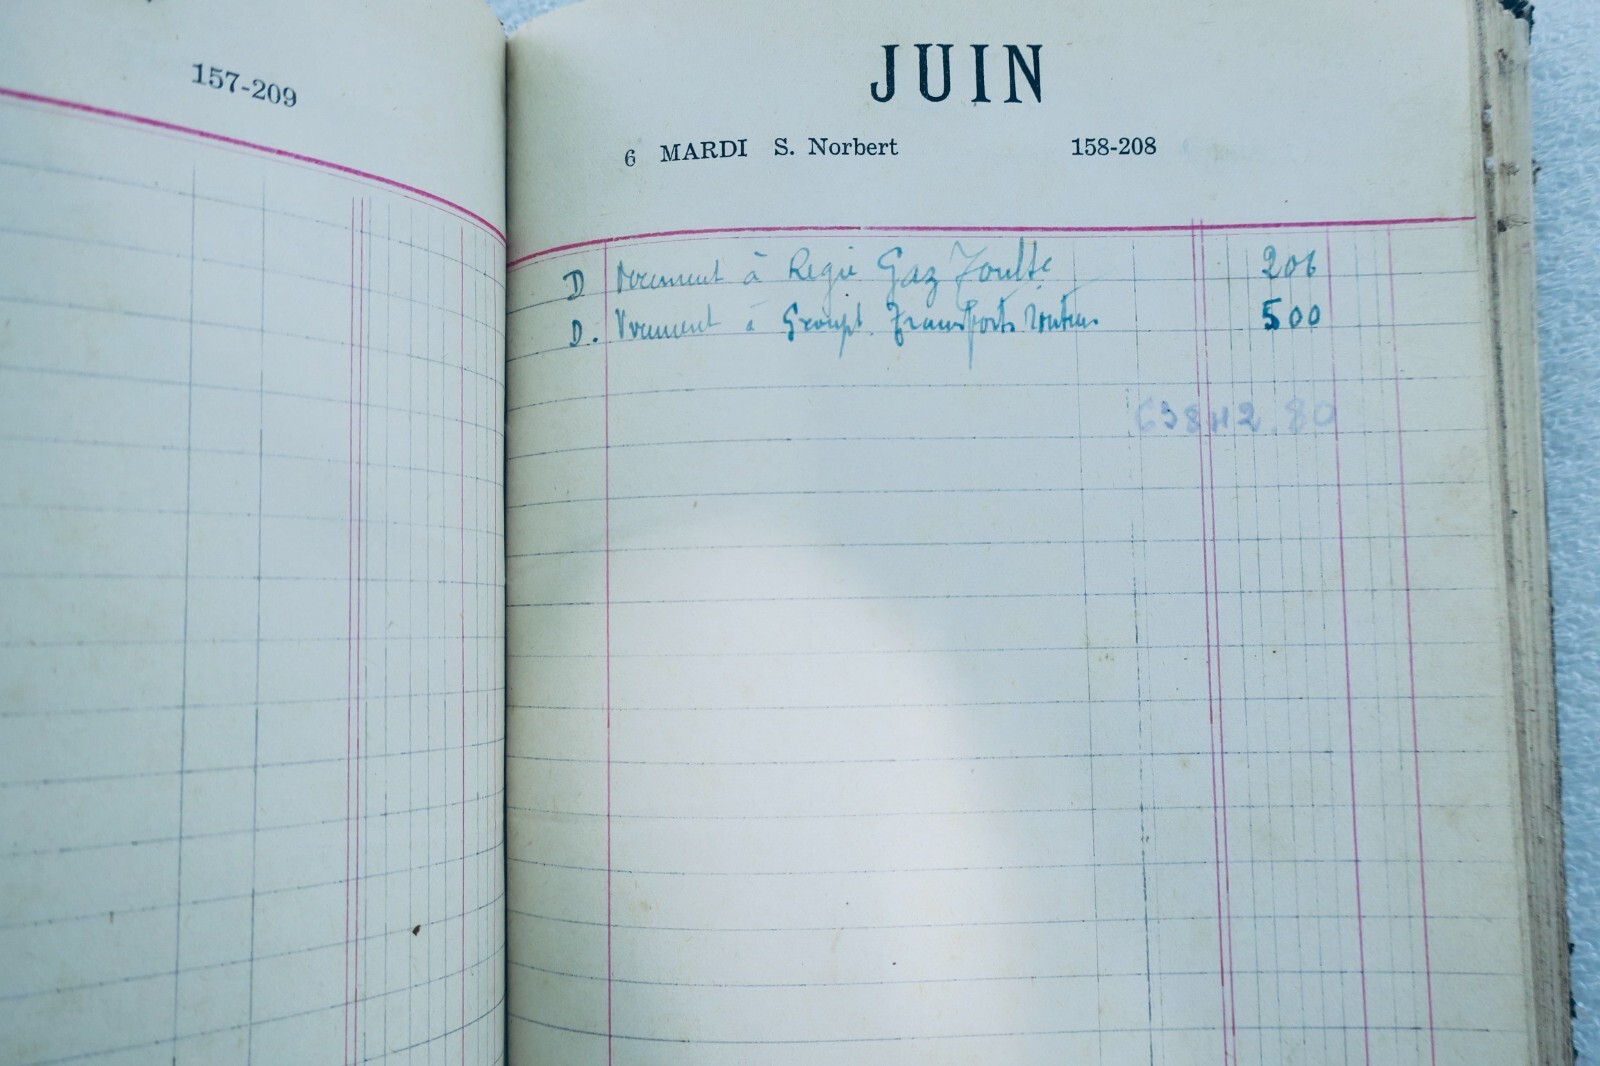 157-209
JUIN
6 MARDI S. Norbert 158-208
D Virement à Régie Gaz 206
D. Virement à Groupt. Transports routiers 500
63842.80